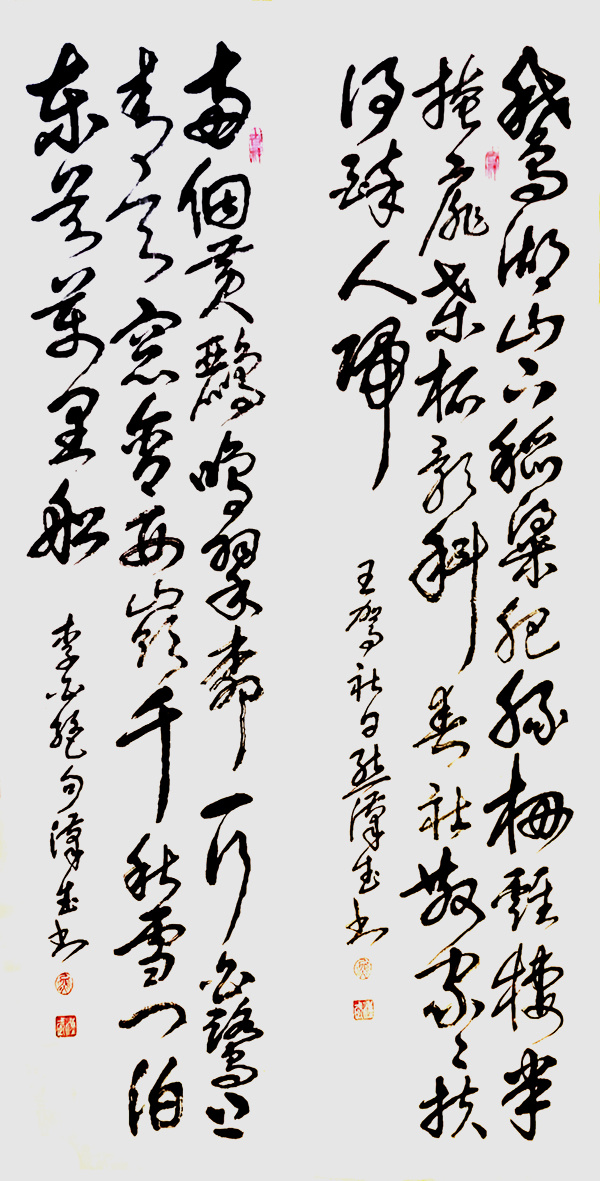 鵞湖山下稻粱肥豚柵雞棲半
掩扉桑柘影斜春社散家々扶
得醉人歸
王駕社日熊漢書
兩個黃鸝鳴翠柳一行白鷺上
青天窓含西嶺千秋雪門泊
東吳萬里船
李白絕句漢書